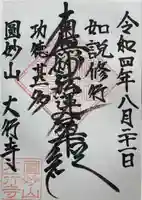 令和四年八月二十一日
如説修行
南無妙法蓮華経
功徳甚多
圓妙山 大行寺